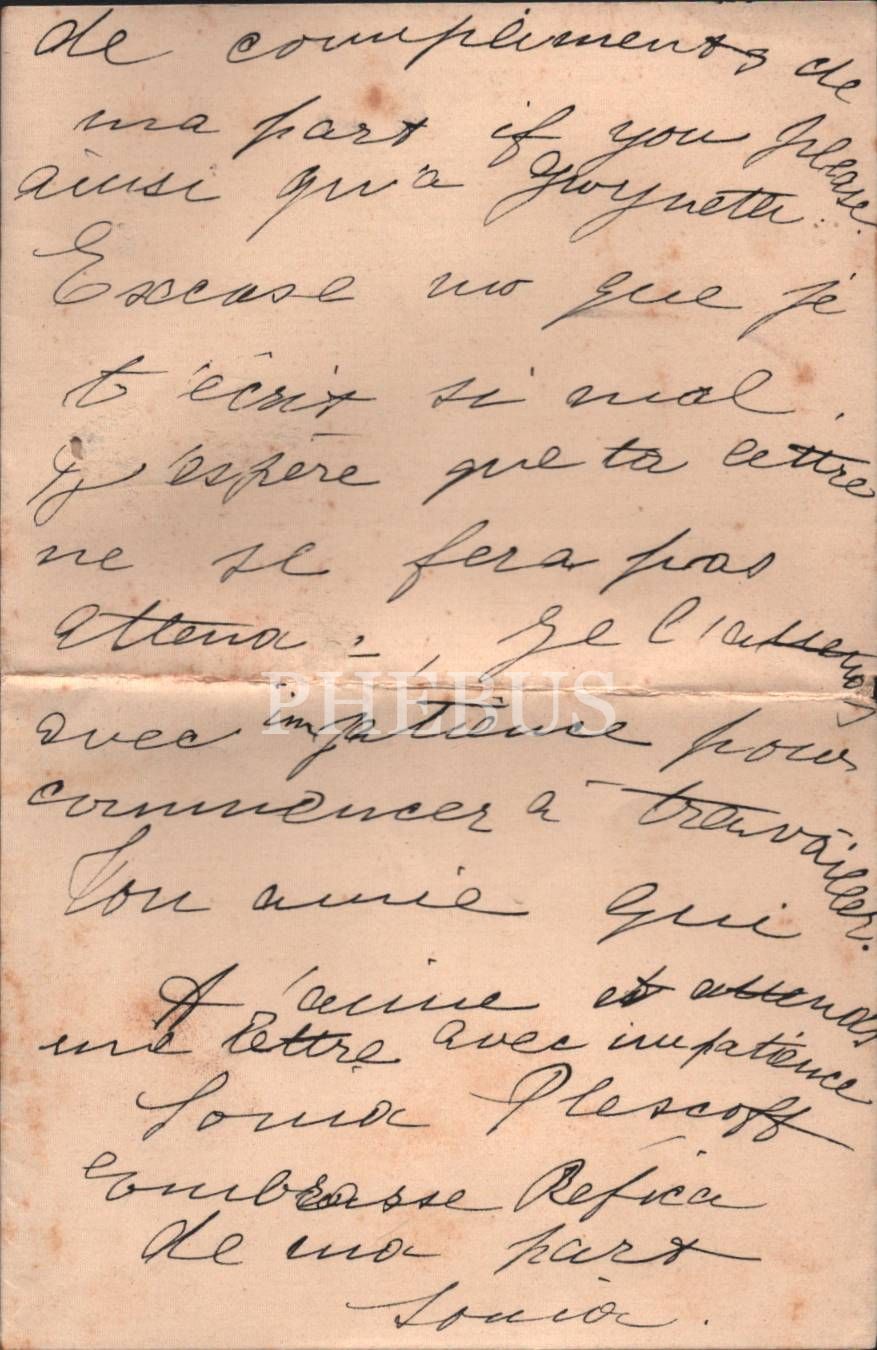 de compliments de
ma part if you please.
ainsi qu'à Gwyneth.
Excuse mo que je
t'écris si mal.
J'espère que ta lettre
ne se fera pas
attend=, Je l'attends
PHEBUS
avec impatience pour
commencer à travailler.
Ton amie qui
t'aime et attends
une lettre avec impatience
Sonia Plescoff
embrasse Refica
de ma part
Sonia.